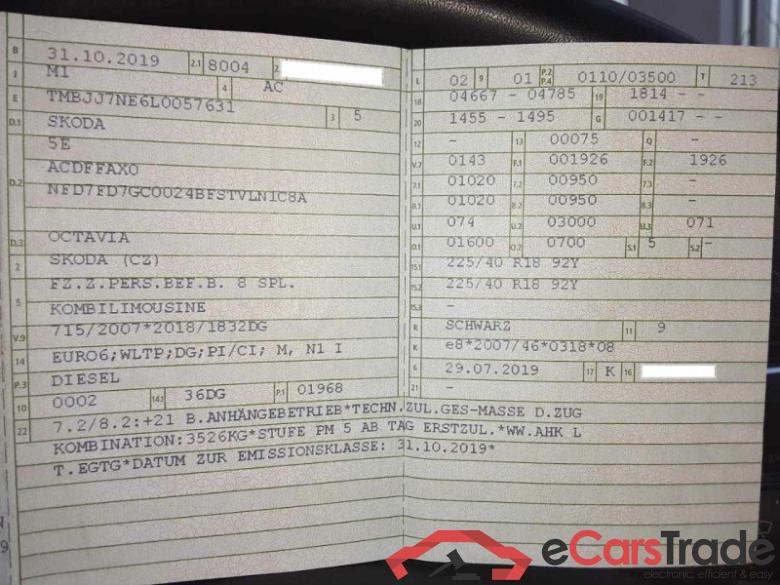 B 31.10.2019 2.1 8004 2.
J M1 4 AC
E TMBJJ7NE6L0057631 3 5
D.1 SKODA
5E
D.2 ACDFFAX0
NFD7FD7GC0024BFSTVLN1C8A
D.3 OCTAVIA
2 SKODA (CZ)
5 FZ.Z.PERS.BEF.B. 8 SPL.
KOMBILIMOUSINE
V.9 715/2007*2018/1832DG
14 EURO6;WLTP;DG;PI/CI; M, N1 I
P.3 DIESEL
10 0002 14.1 36DG P.1 01968
L 02 9 01 P.2 P.4 0110/03500 T 213
18 04667 - 04785 19 1814 - -
20 1455 - 1495 G 001417 - -
12 - 13 00075 Q -
V.7 0143 F.1 001926 F.2 1926
7.1 01020 7.2 00950 7.3 -
8.1 01020 8.2 00950 8.3 -
U.1 074 U.2 03000 U.3 071
O.1 01600 O.2 0700 S.1 5 S.2 -
15.1 225/40 R18 92Y
15.2 225/40 R18 92Y
15.3 -
R SCHWARZ 11 9
K e8*2007/46*0318*08
6 29.07.2019 17 K 16
21 -
22 7.2/8.2:+21 B.ANHÄNGEBETRIEB*TECHN.ZUL.GES-MASSE D.ZUG
KOMBINATION:3526KG*STUFE PM 5 AB TAG ERSTZUL.*WW.AHK L
T.EGTG*DATUM ZUR EMISSIONSKLASSE: 31.10.2019*
eCarsTrade
electronic, efficient & easy